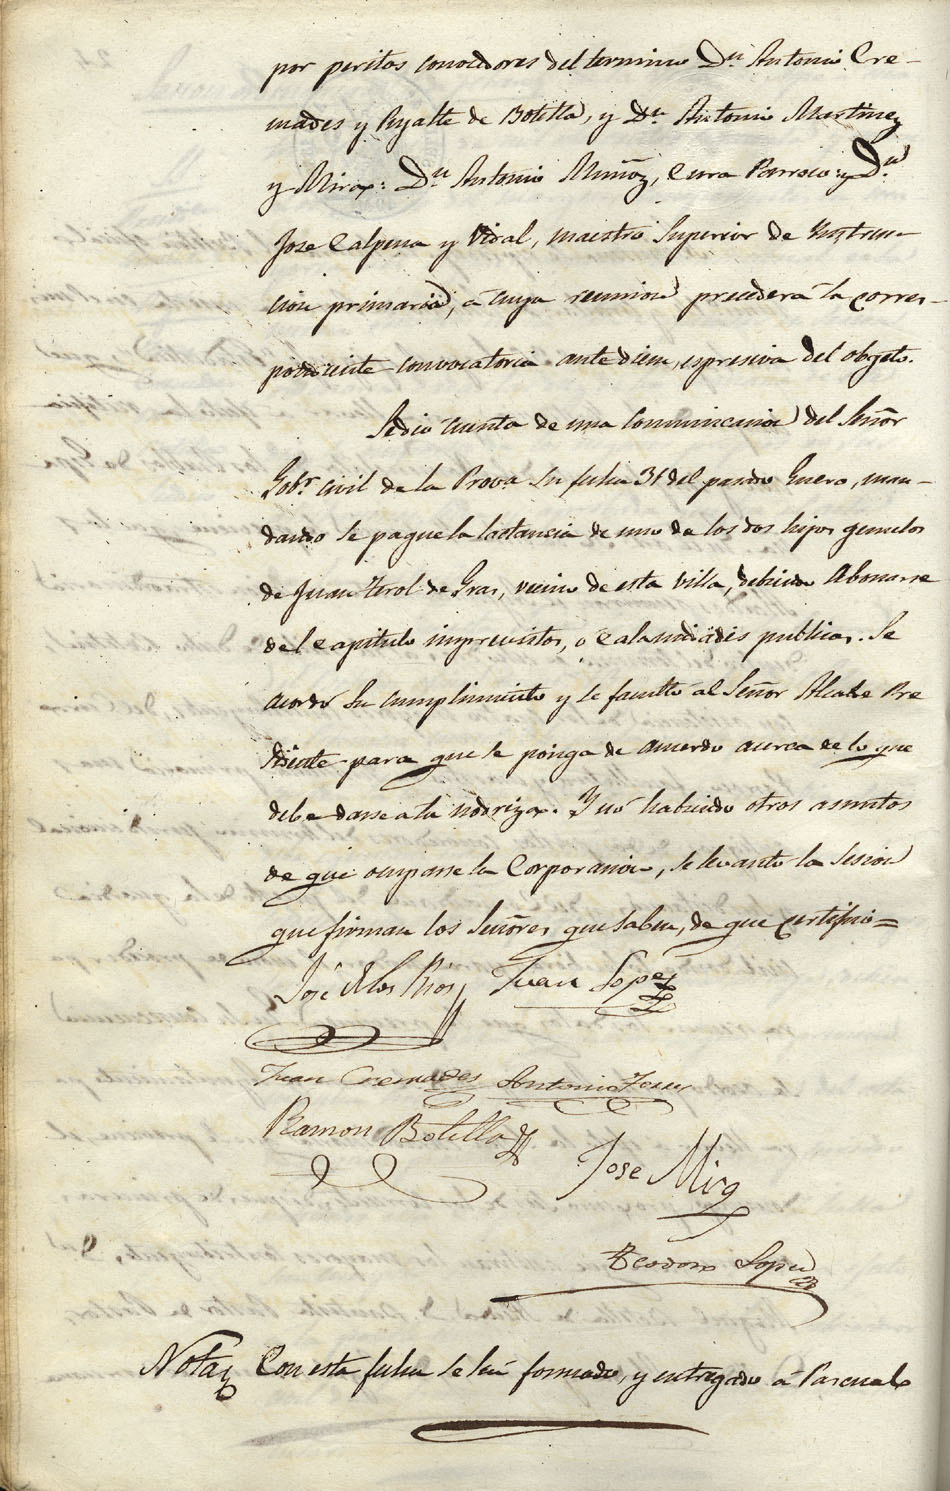 por peritos conocedores del termino Dn Antonio Cre-
mades y Pujalte de Botilla, y Dn Antonio Martinez
y Mira: Dn Antonio Muñoz, Cura Parroco: y Dn
Jose Calpena y Vidal, maestro Superior de Ynstruc-
cion primaria, a cuya reunion precederá la corres-
pondiente convocatoria ante diem, espresiva del objeto.
Se dio cuenta de una comunicacion del Señor
Gobr civil de la Prova su fecha 31 del pasado Enero, man-
dando se pague la lactancia de uno de los dos hijos gemelos
de Juan Terol de Gras, vecino de esta Villa, debiendo Abonarse
del Capitulo imprevistos, o Calamidades publicas. Se
acordó su cumplimiento y se facultó al Señor Alcalde Pre
sidente para que se ponga de acuerdo acerca de lo que
debe darse a la nodriza. Y no habiendo otros asuntos
de que ocuparse la Corporacion, se levantó la Sesion
que firman los Señores que saben, de que certifico=
José de los Rios Juan Lopez
Juan Cremades Antonio Ferrer
Ramon Botilla
Jose Mira
Teodoro Lopez
Nota Con esta fecha se há formado, y entregado á Pascual